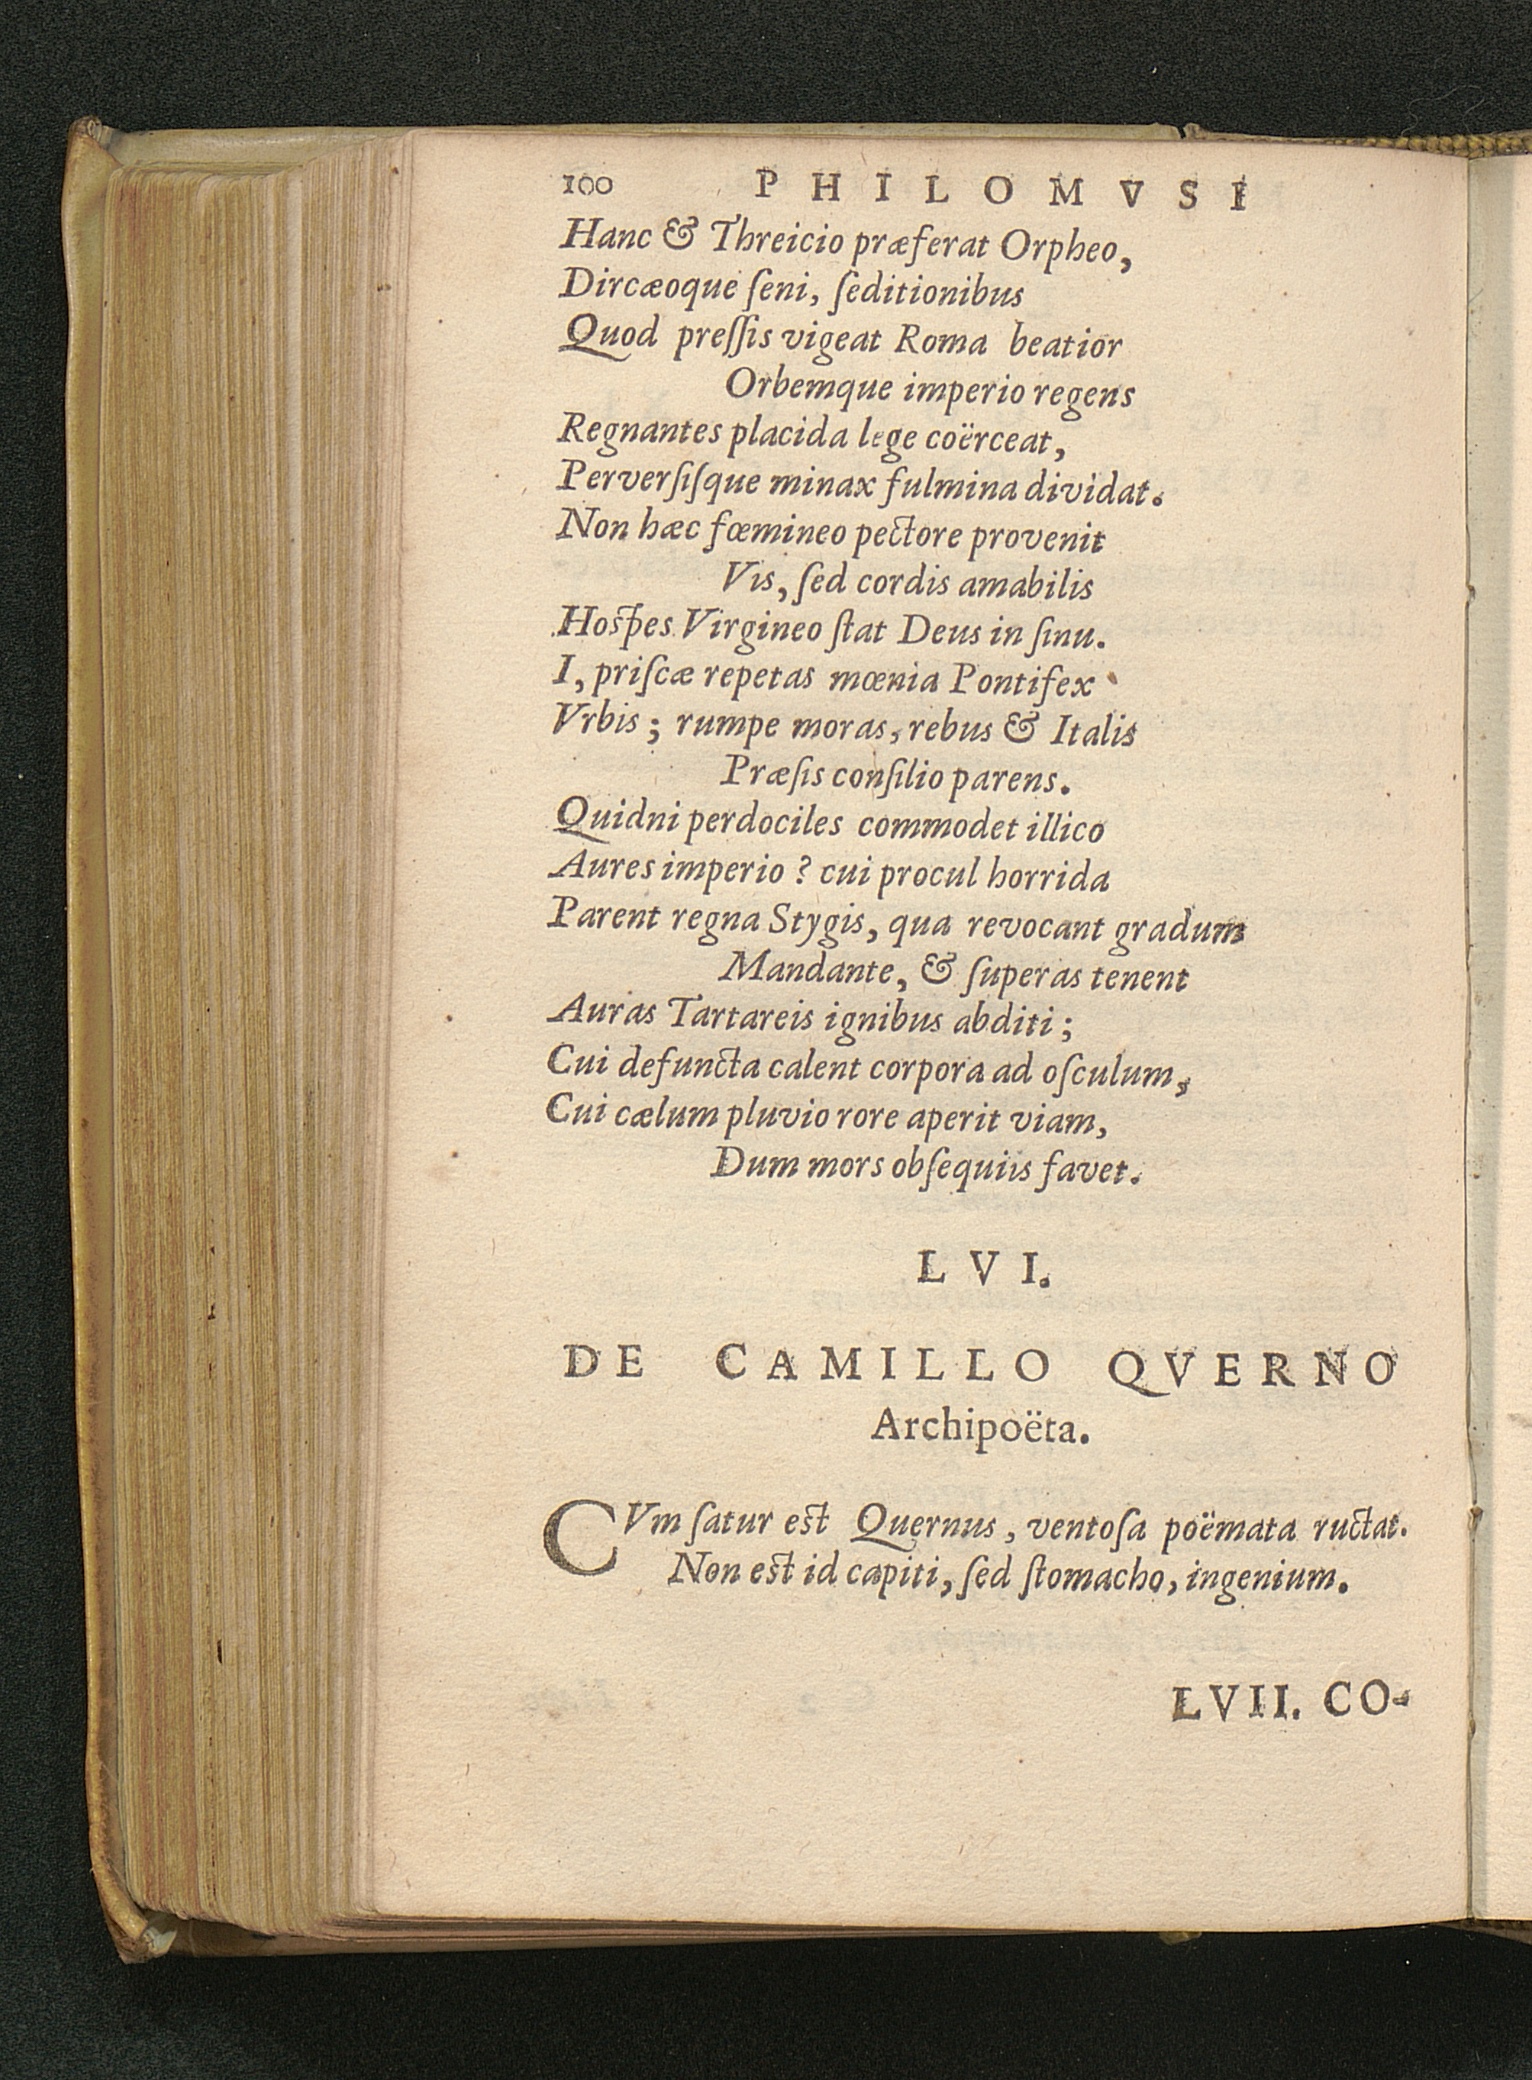 100 PHILOMVSI
Hanc & Threicio præferat Orpheo,
Dircæoque ſeni, ſeditionibus
Quod preſſis vigeat Roma beatior
Orbemque imperio regens
Regnantes placida lege coërceat,
Perverſiſque minax fulmina dividat.
Non hæc fœmineo pectore provenit
Vis, ſed cordis amabilis
Hoſpes Virgineo ſtat Deus in ſinu.
I, priſcæ repetas mœnia Pontifex
Vrbis; rumpe moras, rebus & Italis
Præſis conſilio parens.
Quidni perdociles commodet illico
Aures imperio? cui procul horrida
Parent regna Stygis, qua revocant gradum
Mandante, & ſuperas tenent
Auras Tartareis ignibus abditi;
Cui defuncta calent corpora ad oſculum,
Cui cælum pluvio rore aperit viam,
Dum mors obſequiis favet.
LVI.
DE CAMILLO QVERNO
Archipoëta.
CVm ſatur eſt Quernus, ventoſa poëmata ructat.
Non eſt id capiti, ſed ſtomacho, ingenium.
LVII. CO-